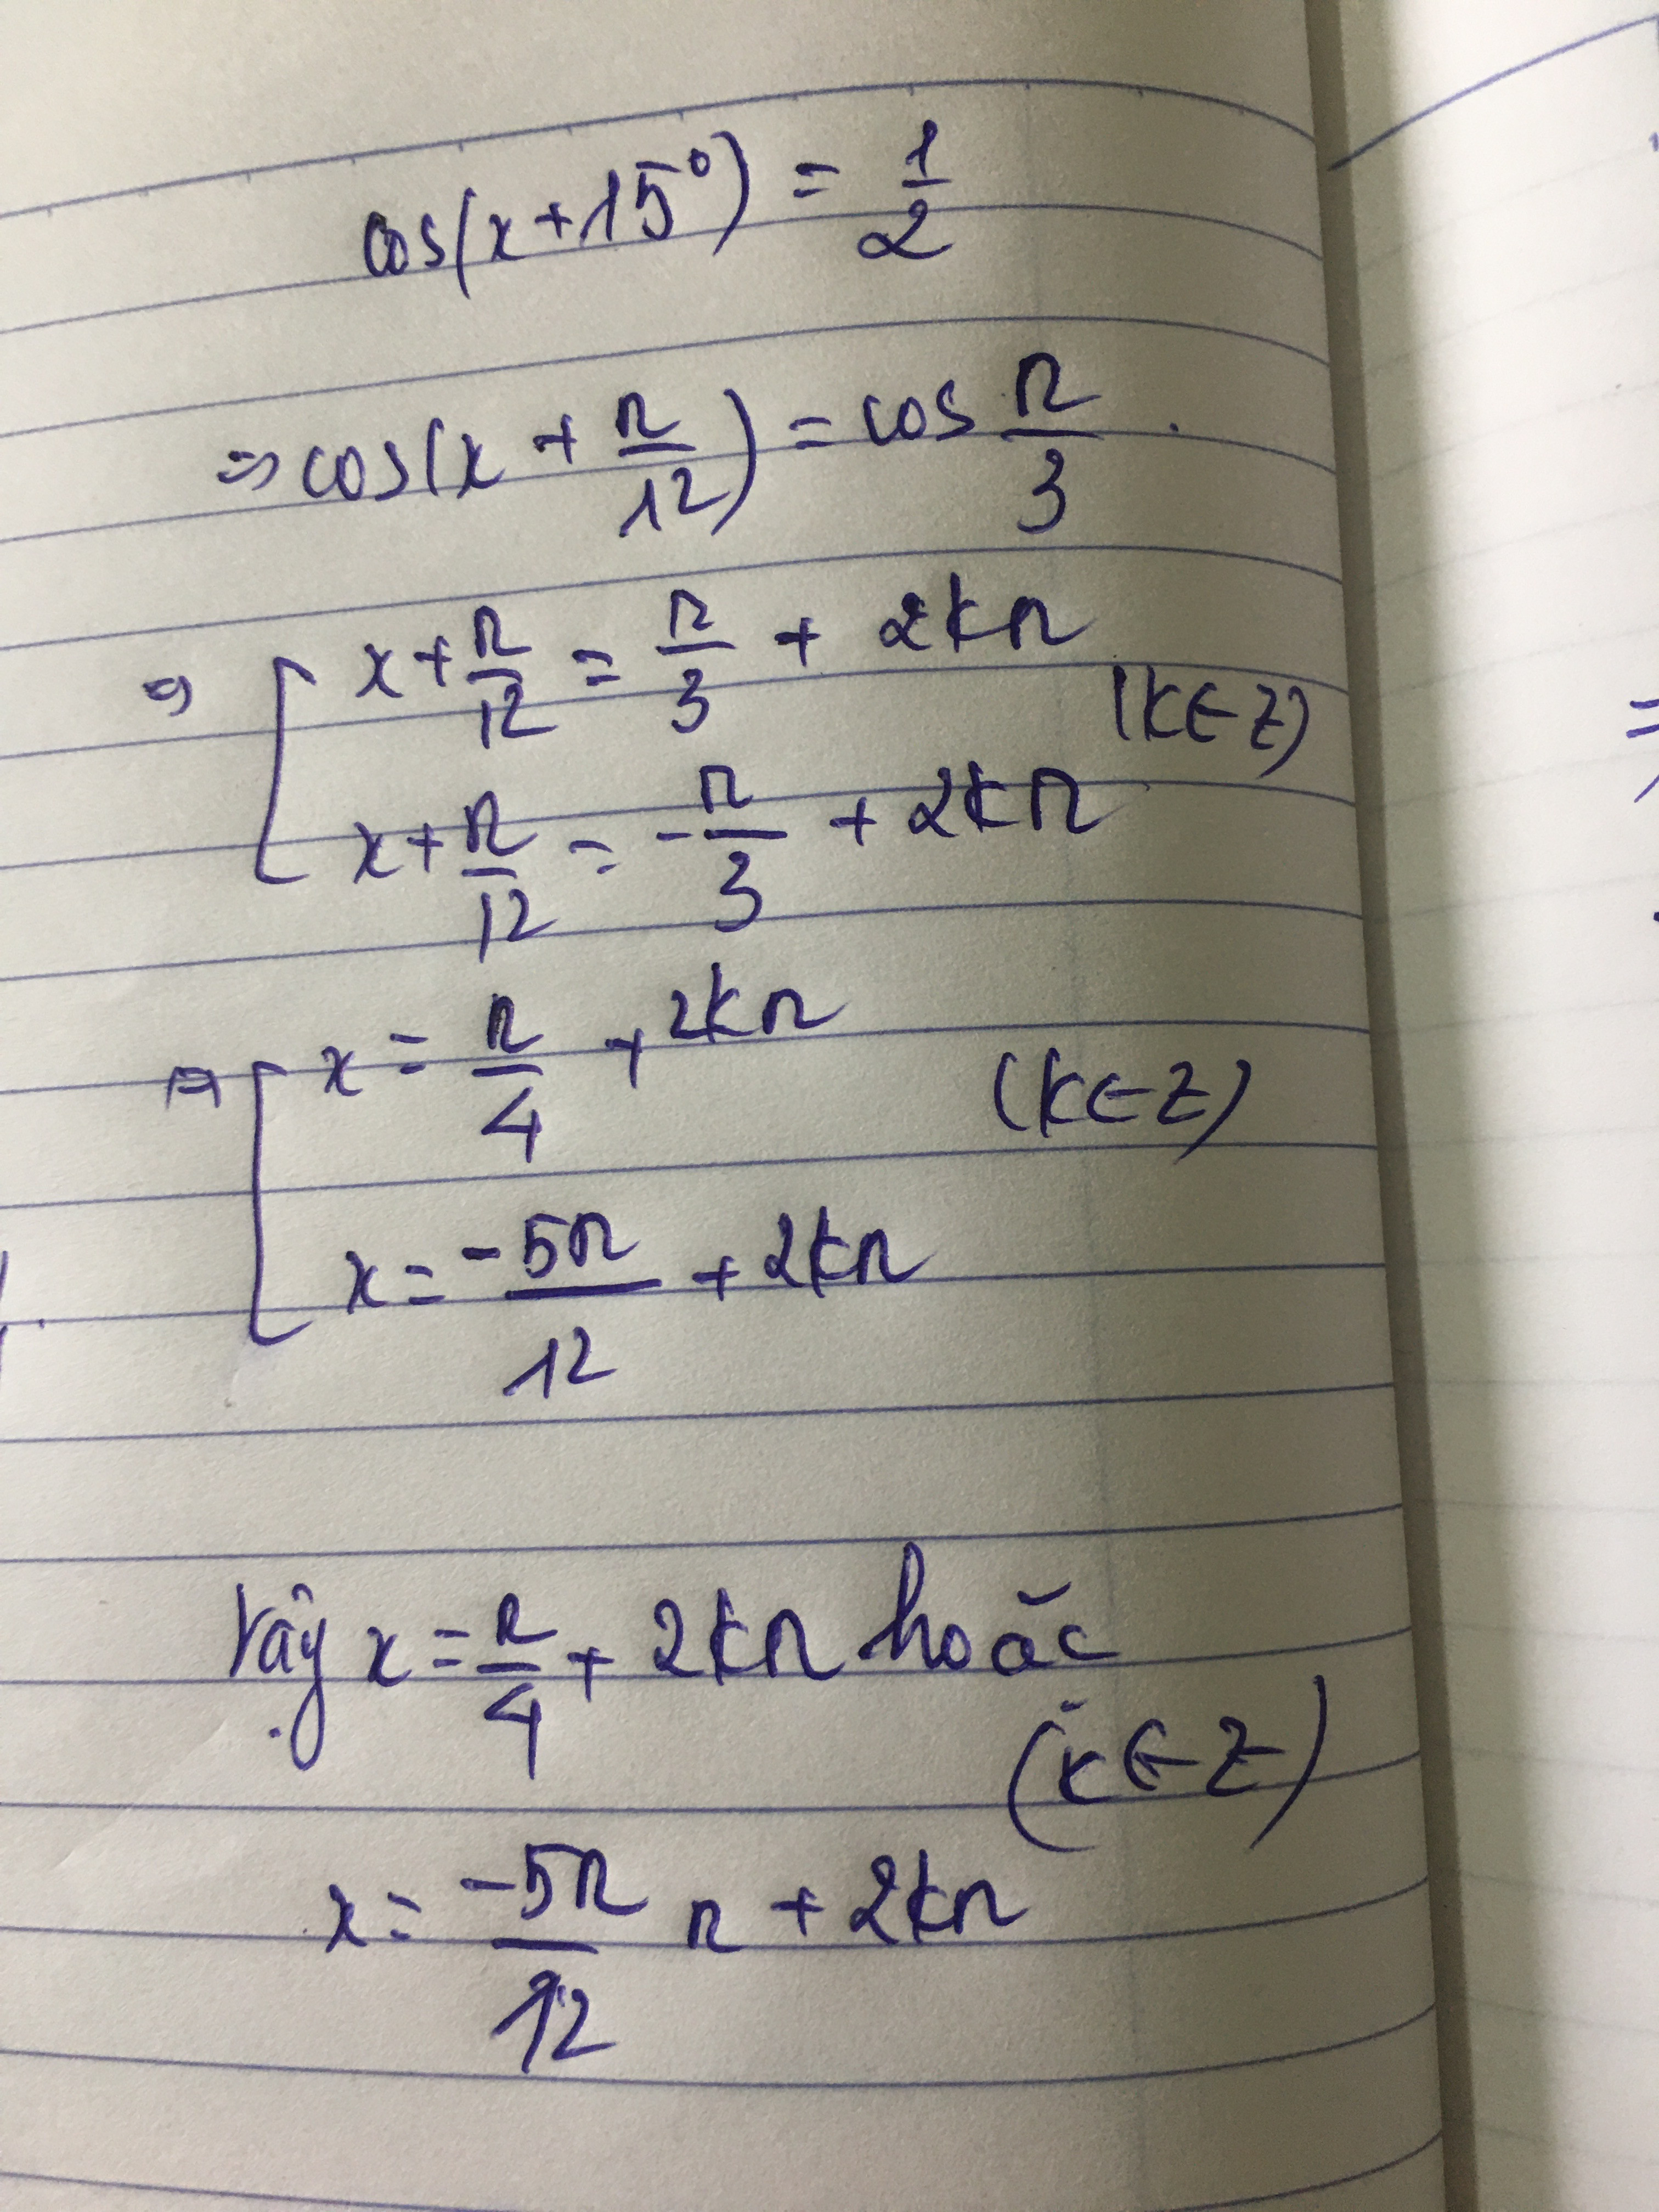 cos(x+15°) = 1/2
=> cos(x + π/12) = cos π/3.
=> [ x + π/12 = π/3 + 2kπ
(k∈Z)
x + π/12 = -π/3 + 2kπ
=> [ x = π/4 + 2kπ
(k∈Z)
x = -5π/12 + 2kπ
Vậy x = π/4 + 2kπ hoặc
(k∈Z)
x = -5π/12 π + 2kπ